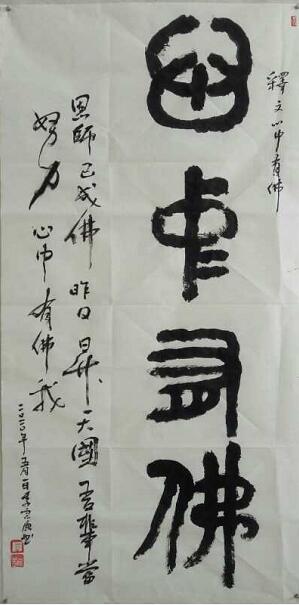 釋文心中有佛
心中有佛
恩師已成佛昨日昇天國吾輩當
努力心中有佛我
二〇二〇年五月一日李